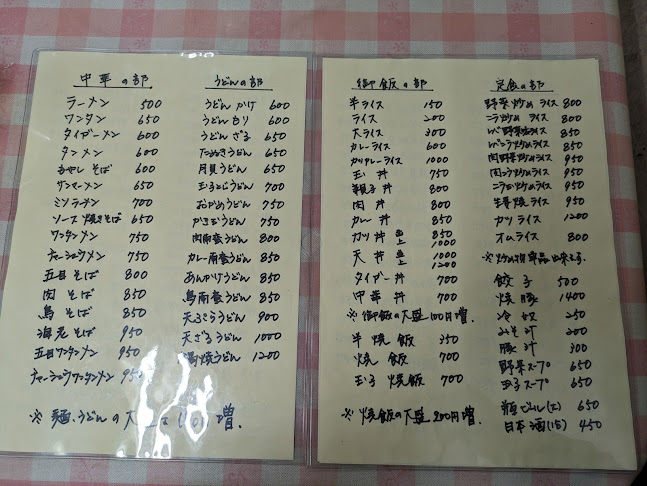 中華の部
ラーメン 500
ワンタン 650
タイガーメン 600
タンメン 600
もやしそば 600
サンマーメン 650
ミソラーメン 700
ソース焼きそば 650
ワンタンメン 750
チャーシューメン 750
五目そば 800
肉そば 850
鳥そば 850
海老そば 950
五目ワンタンメン 950
チャーシューワンタンメン 950
うどんの部
うどんかけ 600
うどんもり 600
うどんざる 650
たぬきうどん 650
月見うどん 650
玉子とじうどん 700
おかめうどん 750
かき玉うどん 750
肉南蛮うどん 800
カレー南蛮うどん 850
あんかけうどん 850
鳥南蛮うどん 850
天ぷらうどん 900
天ざるうどん 1000
鍋焼うどん 1200
※麺、うどんの大盛は100円増.
御飯の部
半ライス 150
ライス 200
大ライス 300
カレーライス 600
カツカレーライス 1000
玉丼 750
親子丼 800
肉丼 800
カレー丼 850
カツ丼 並 850
上 1000
天丼 並 1000
上 1200
タイガー丼 700
中華丼 700
※御飯の大盛100円増.
半焼飯 350
焼飯 700
玉子焼飯 700
※焼飯の大盛200円増.
定食の部
野菜炒めライス 800
ニラ炒めライス 800
レバ野菜炒ライス 850
レバニラ炒めライス 850
肉野菜炒めライス 950
肉ニラ炒めライス 950
ニラ玉炒めライス 950
生姜焼ライス 950
カツライス 1200
オムライス 800
※炒め物単品出来ます.
餃子 500
焼豚 1400
冷奴 250
みそ汁 200
豚汁 300
野菜スープ 650
玉子スープ 650
瓶ビール(大) 650
日本酒(1合) 450